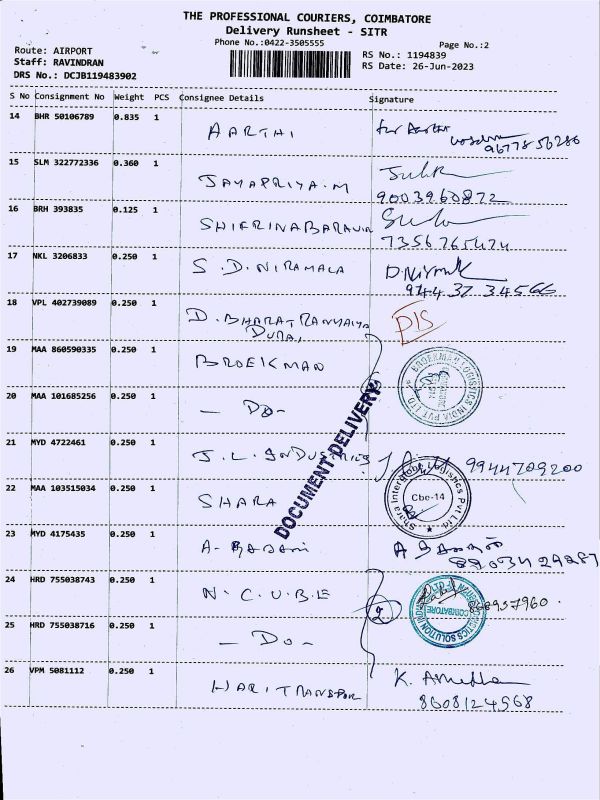 THE PROFESSIONAL COURIERS, COIMBATORE
Delivery Runsheet - SITR
Phone No.:0422-3505555
Page No.:2
Route: AIRPORT
RS No.: 1194839
Staff: RAVINDRAN
RS Date: 26-Jun-2023
DRS No.: DCJB119483902
S No Consignment No Weight PCS Consignee Details Signature
14 BHR 50106789 0.835 1 AARTHI for Aarthi
9677856286
15 SLM 322772336 0.360 1 JAYAPRIYA.M
9003960872
16 BRH 393835 0.125 1
7356765474
17 NKL 3206833 0.250 1 S.D.NIRAMALA D.Nirmala
9443234566
18 VPL 402739089 0.250 1 D. BHARAT DIS
DURAI
19 MAA 860590335 0.250 1 BROEKMAN
BROEKMAN LOGISTICS INDIA PVT LTD
20 MAA 101685256 0.250 1 - DO -
DOCUMENT DELIVERY
21 MYD 4722461 0.250 1 J.L. INDUSTRIES 9944709200
22 MAA 103515034 0.250 1 SHARA
Shara Interglobe Logistics Pvt Ltd.
Cbe-14
23 MYD 4175435 0.250 1 A-
24 HRD 755038743 0.250 1 N.C.U.B.E 2
COIMBATORE
25 HRD 755038716 0.250 1 - DO -
26 VPM 5081112 0.250 1 HARI TRANSPOR K.
8608124568